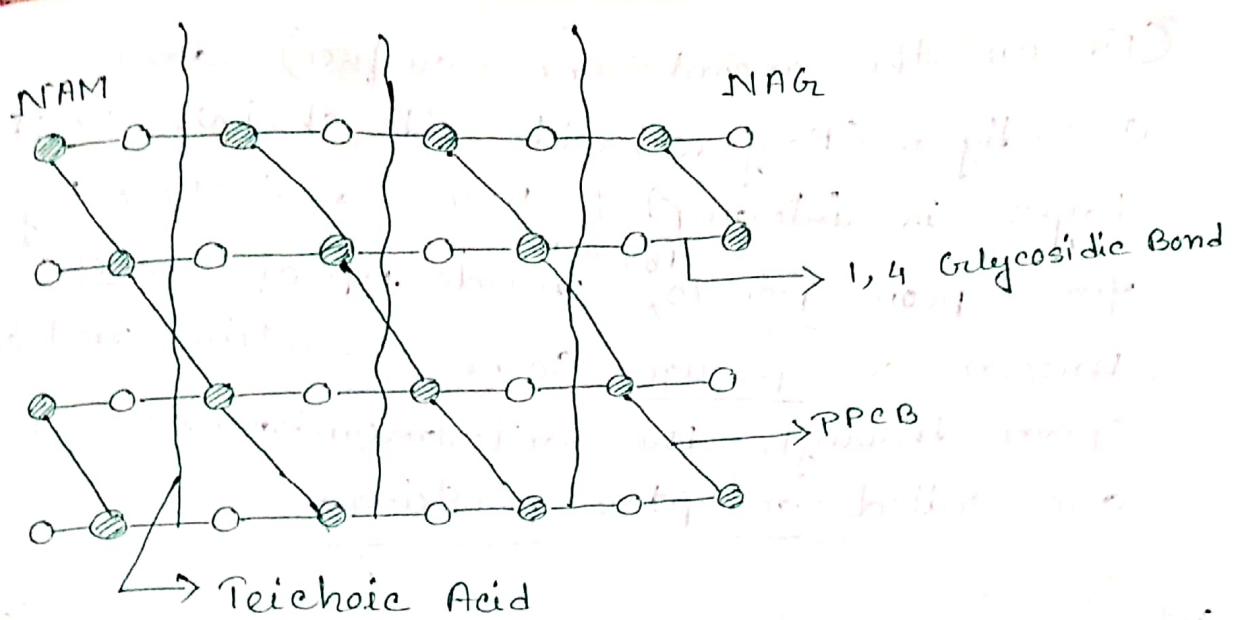 NAM
NAG
1, 4 Glycosidic Bond
PPCB
Teichoic Acid